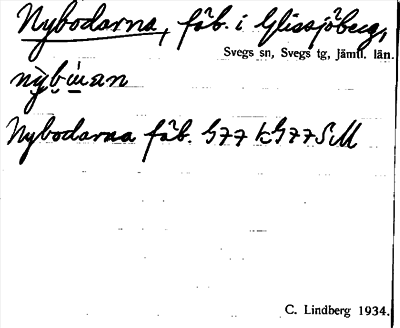 Nybodarna, fäb. i Glissjöberg,
Svegs sn, Svegs tg, Jämtl. län.
Nybodarna fäb. G77 kG77SM
C. Lindberg 1934.